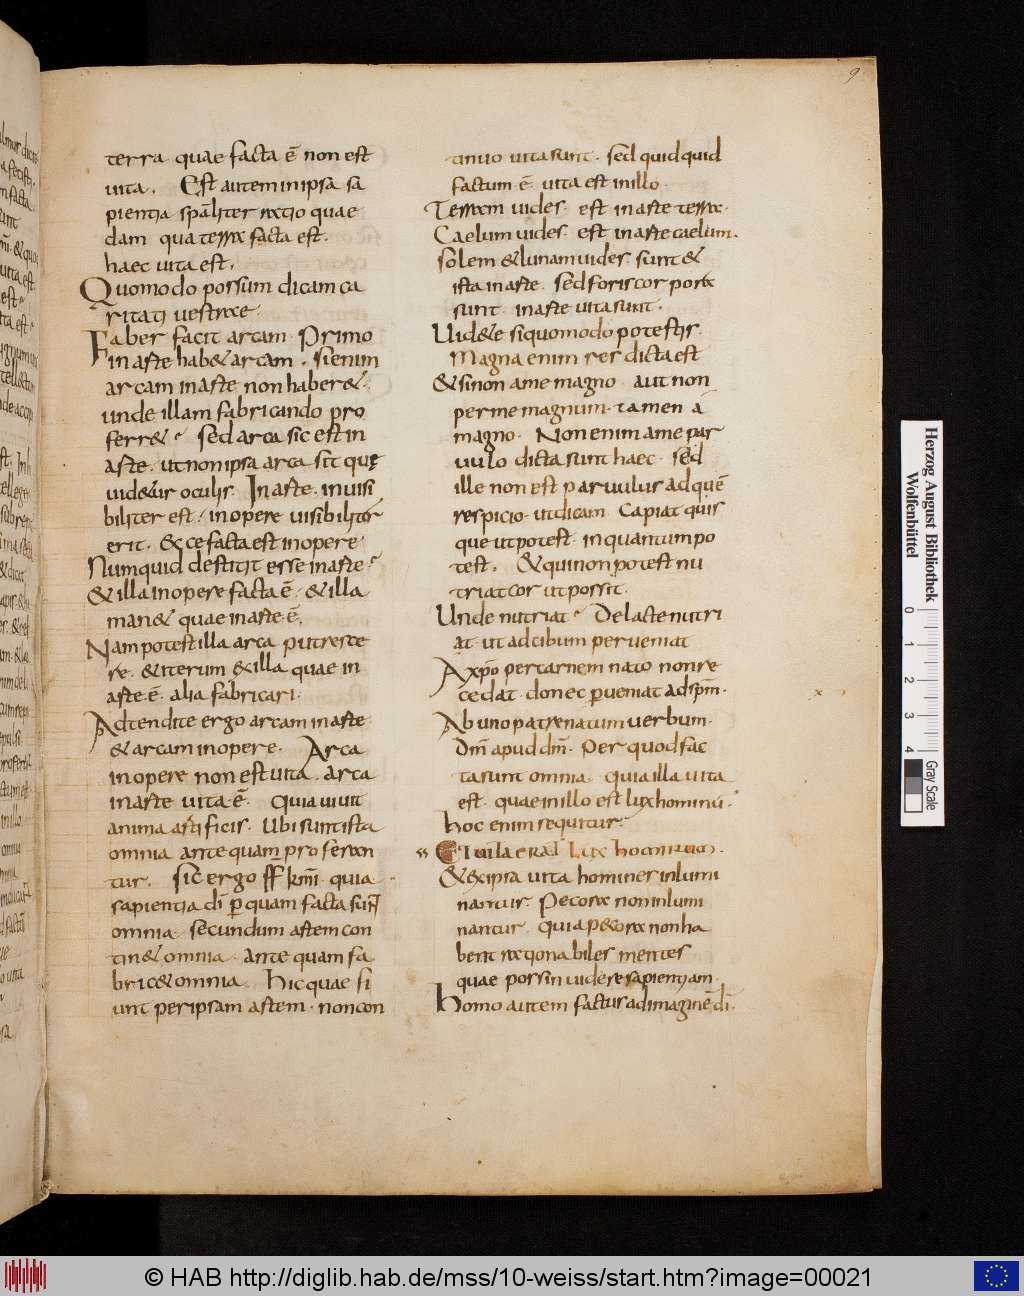 9
terra quae facta ē non est
uita. Est autem in ipsa sa
pientia spāliter ratio quae
dam qua terra facta est.
haec uita est.
Quomodo possum dicam ca
ritati uestrae.
Faber facit arcam. Primo
in arte hab& arcam. si enim
arcam in arte non haber&.
unde illam fabricando pro
ferr&. sed arca sic est in
arte. ut non ipsa arca sit quę
uid&ur oculis. In arte. inuisi
biliter est. in opere uisibiliter
erit. Ecce facta est in opere
Numquid destitit esse in arte
& illa in opere facta ē. & illa
man& quae in arte ē.
Nam potest illa arca putresce
re. & iterum ex illa quae in
arte ē. alia fabricari.
Adtendite ergo arcam in arte
& arcam in opere. Arca
in opere non est uita. arca
in arte uita ē. Quia uiuit
anima artificis. Ubi sunt ista
omnia antequam proferan
tur. Sic ergo quia
sapientia dī p quam facta sunt
omnia. secundum artem con
tin& omnia. Antequam fa
bric& omnia. Hic quae fi
unt per ipsam artem. non con
tinuo uita sunt. sed quidquid
factum ē. uita est in illo.
Terram uides. est in arte terra.
Caelum uides. est in arte caelum.
solem & lunam uides. sunt &
ista in arte. sed foris corpora
sunt. in arte uita sunt.
Uid&e si quo modo potestis.
Magna enim res dicta est
& si non a me magno. aut non
per me magnum. tamen a
magno. Non enim a me par
uulo dicta sunt haec. sed
ille non est paruulus ad quē
respicio. ut dicam. Capiat quis
que ut potest. in quantum po
test. & qui non potest nu
triat cor ut possit.
Unde nutriat. De lacte nutri
at ut ad cibum perueniat
A xp̄o per carnem nato non re
cedat. donec pueniat ad xpm̄.
Ab uno patre natum uerbum.
Dm̄ apud dm̄. Per quod fac
ta sunt omnia. Quia illa uita
est. quae in illo est lux hominū.
hoc enim sequitur.
Et uita erat lux hominum.
& ex ipsa uita homines inlumi
nantur. Pecora non inlumi
nantur. quia pecora non ha
bent rationabiles mentes
quae possin uidere sapientiam.
Homo autem factus ad imaginē dī.
Herzog August Bibliothek
Wolfenbüttel
0 1 2 3 4
Gray Scale
© HAB http://diglib.hab.de/mss/10-weiss/start.htm?image=00021